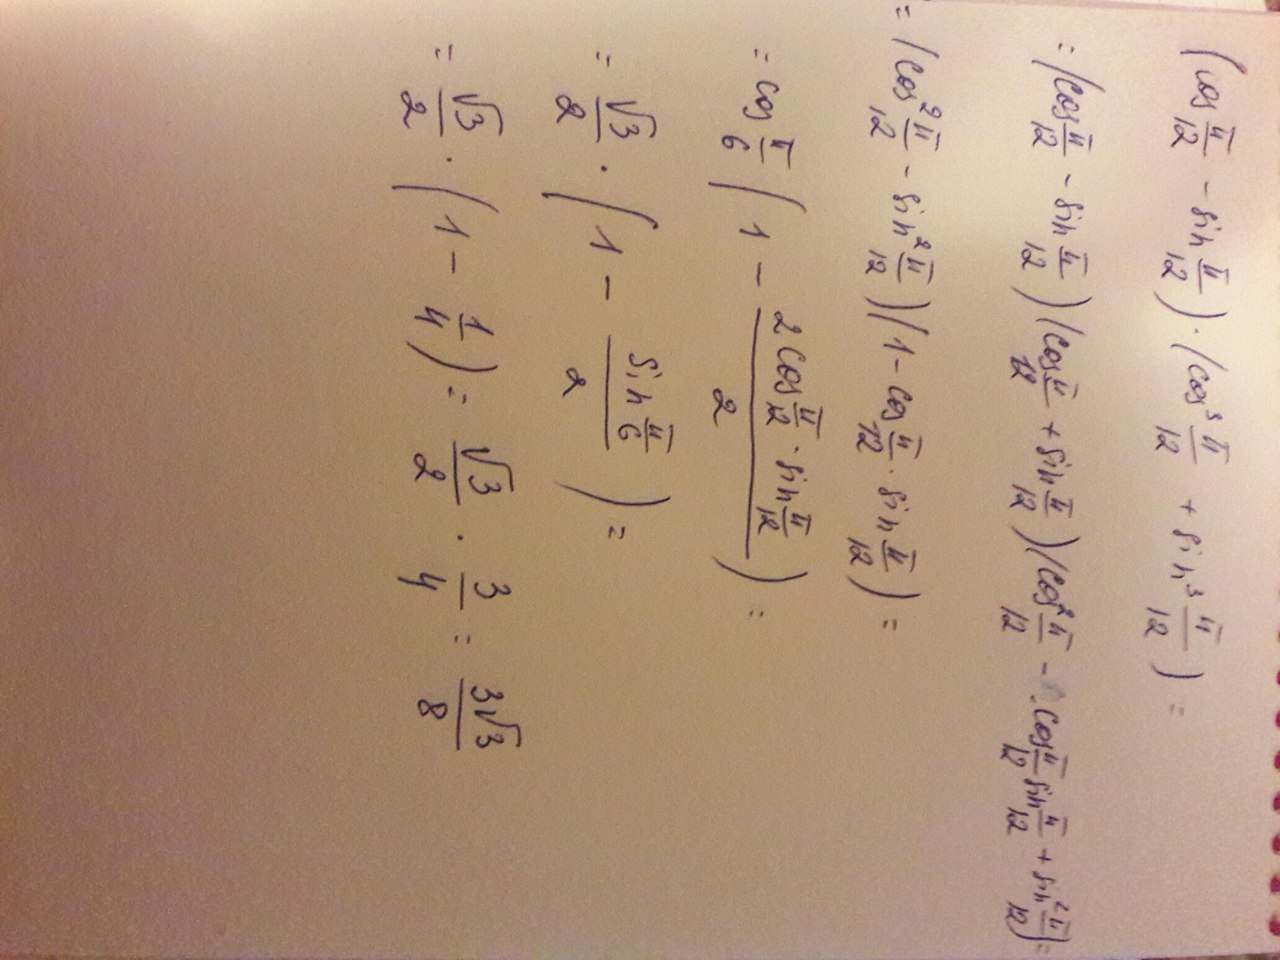 (cos π/12 - sin π/12) · (cos³ π/12 + sin³ π/12) =
= (cos π/12 - sin π/12)(cos π/12 + sin π/12)(cos² π/12 - cos π/12 sin π/12 + sin² π/12) =
= (cos² π/12 - sin² π/12)(1 - cos π/12 · sin π/12) =
= cos π/6 (1 - (2 cos π/12 · sin π/12)/2) =
= √3/2 · (1 - (sin π/6)/2) =
= √3/2 · (1 - 1/4) = √3/2 · 3/4 = 3√3/8